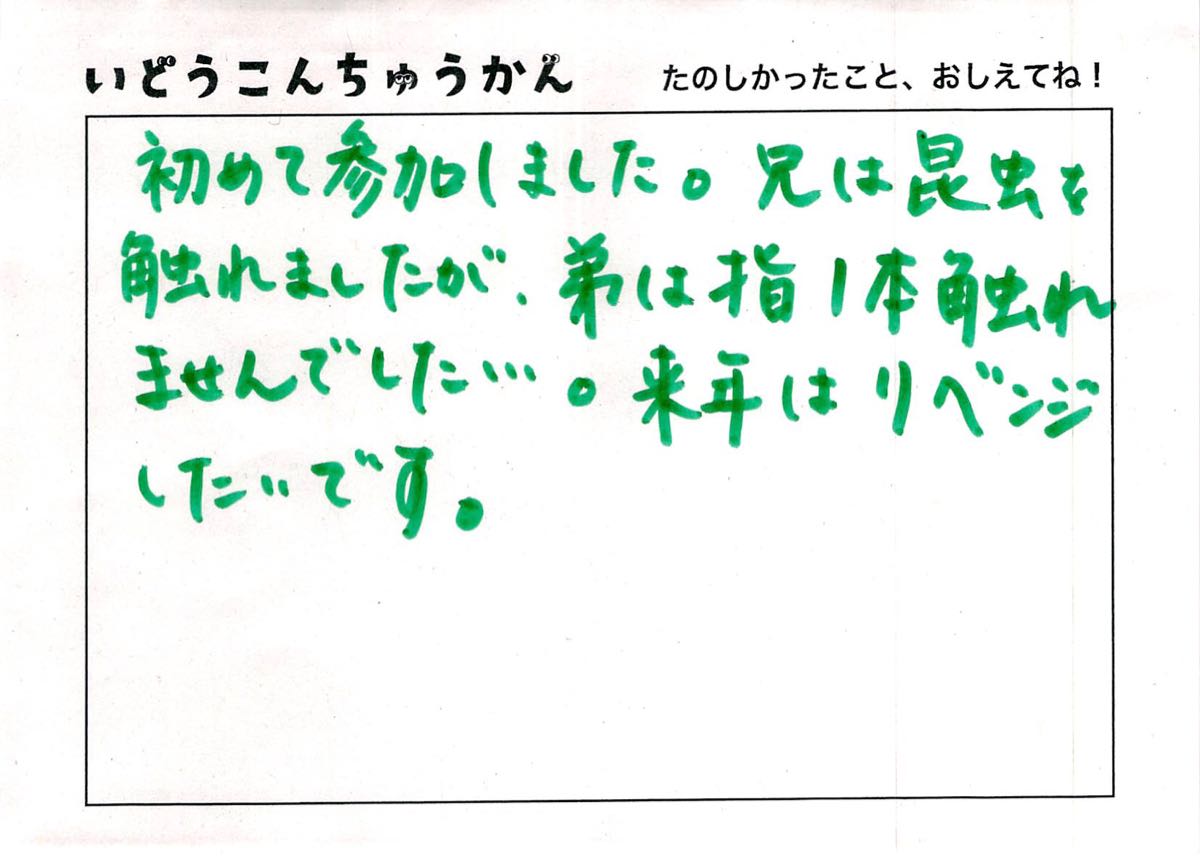 いどうこんちゅうかん たのしかったこと、おしえてね！
初めて参加しました。兄は昆虫を
触れましたが、弟は指1本触れ
ませんでした…。来年はリベンジ
したいです。